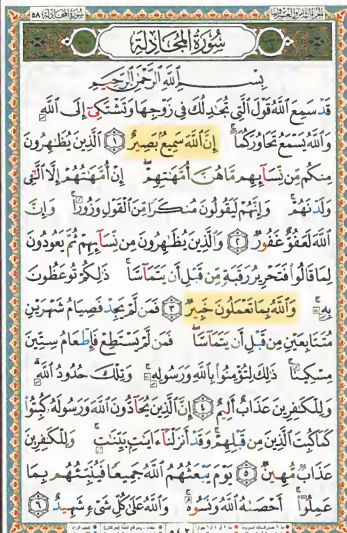 سُورَةُ المُجَادلة
بِسْمِ اللَّهِ الرَّحْمَٰنِ الرَّحِيمِ
قَدْ سَمِعَ اللَّهُ قَوْلَ الَّتِي تُجَادِلُكَ فِي زَوْجِهَا وَتَشْتَكِي إِلَى اللَّهِ
وَاللَّهُ يَسْمَعُ تَحَاوُرَكُمَا إِنَّ اللَّهَ سَمِيعٌ بَصِيرٌ ١ الَّذِينَ يُظَاهِرُونَ
مِنكُم مِّن نِّسَائِهِم مَّا هُنَّ أُمَّهَاتِهِمْ إِنْ أُمَّهَاتُهُمْ إِلَّا الَّٰٓـِٔي
وَلَدْنَهُمْ وَإِنَّهُمْ لَيَقُولُونَ مُنكَرًا مِّنَ الْقَوْلِ وَزُورًا وَإِنَّ
اللَّهَ لَعَفُوٌّ غَفُورٌ ٢ وَالَّذِينَ يُظَاهِرُونَ مِن نِّسَائِهِمْ ثُمَّ يَعُودُونَ
لِمَا قَالُوا فَتَحْرِيرُ رَقَبَةٍ مِّن قَبْلِ أَن يَتَمَاسَّا ذَٰلِكُمْ تُوعَظُونَ
بِهِ وَاللَّهُ بِمَا تَعْمَلُونَ خَبِيرٌ ٣ فَمَن لَّمْ يَجِدْ فَصِيَامُ شَهْرَيْنِ
مُتَتَابِعَيْنِ مِن قَبْلِ أَن يَتَمَاسَّا فَمَن لَّمْ يَسْتَطِعْ فَإِطْعَامُ سِتِّينَ
مِسْكِينًا ذَٰلِكَ لِتُؤْمِنُوا بِاللَّهِ وَرَسُولِهِ وَتِلْكَ حُدُودُ اللَّهِ
وَلِلْكَافِرِينَ عَذَابٌ أَلِيمٌ ٤ إِنَّ الَّذِينَ يُحَادُّونَ اللَّهَ وَرَسُولَهُ كُبِتُوا
كَمَا كُبِتَ الَّذِينَ مِن قَبْلِهِمْ وَقَدْ أَنزَلْنَا آيَاتٍ بَيِّنَاتٍ وَلِلْكَافِرِينَ
عَذَابٌ مُّهِينٌ ٥ يَوْمَ يَبْعَثُهُمُ اللَّهُ جَمِيعًا فَيُنَبِّئُهُم بِمَا
عَمِلُوا أَحْصَاهُ اللَّهُ وَنَسُوهُ وَاللَّهُ عَلَىٰ كُلِّ شَيْءٍ شَهِيدٌ ٦
٥٤٢